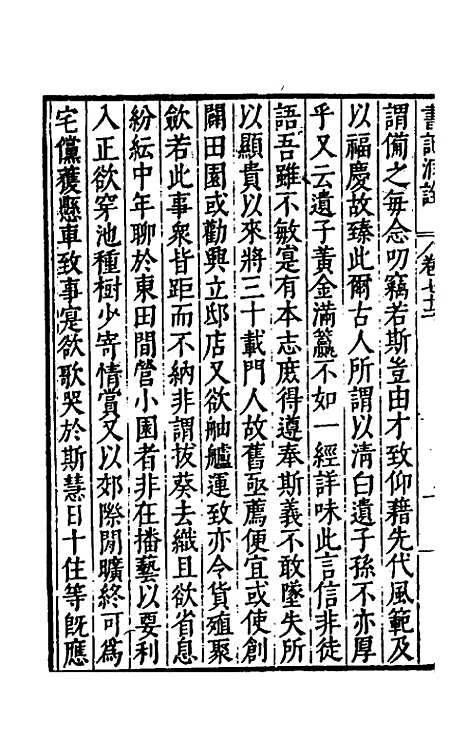 書記洞詮 卷七十二
謂備之每念叨竊若斯豈由才致仰藉先代風範及
以福慶故臻此爾古人所謂以清白遺子孫不亦厚
乎又云遺子黃金滿籯不如一經詳味此言信非徒
語吾雖不敏寔有本志庶得遵奉斯義不敢墜失所
以顯貴以來將三十載門人故舊亟薦便宜或使創
闢田園或勸興立邸店又欲舳艫運致亦令貨殖聚
斂若此事衆皆距而不納非謂拔葵去織且欲省息
紛紜中年聊於東田間營小園者非在播藝以要利
入正欲穿池種樹少寄情賞又以郊際閒曠終可爲
宅儻獲懸車致事寔欲歌哭於斯慧日十住等旣應